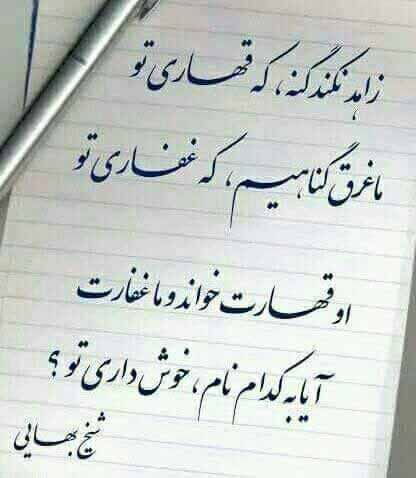 زاهد نکند گنه، که قهاری تو
ما غرق گناهیم، که غفاری تو
او قهارت خواند و ما غفارت
آیا به کدام نام، خوش داری تو؟
شیخ بهایی